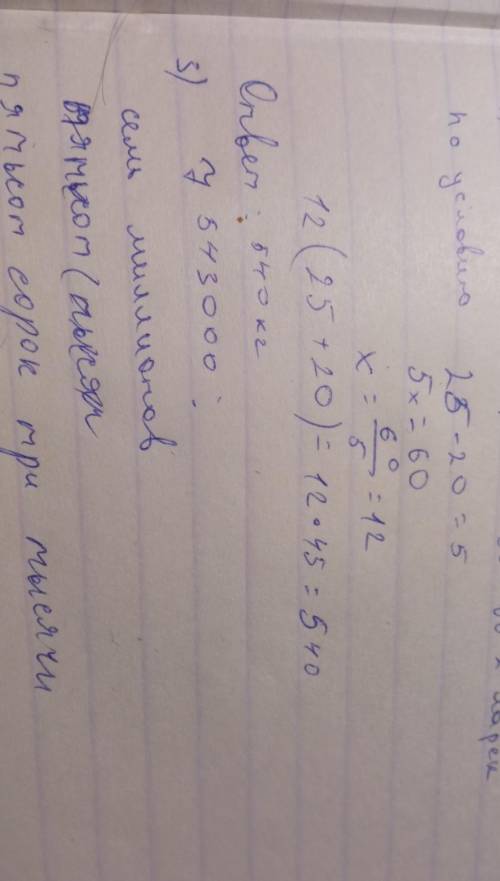 по условию 25-20=5
5x=60
x=60/5=12
12(25+20)=12•45=540
Ответ: 540кг
3) 7 543000:
семь миллионов
пятьсот
пятьсот сорок три тысячи